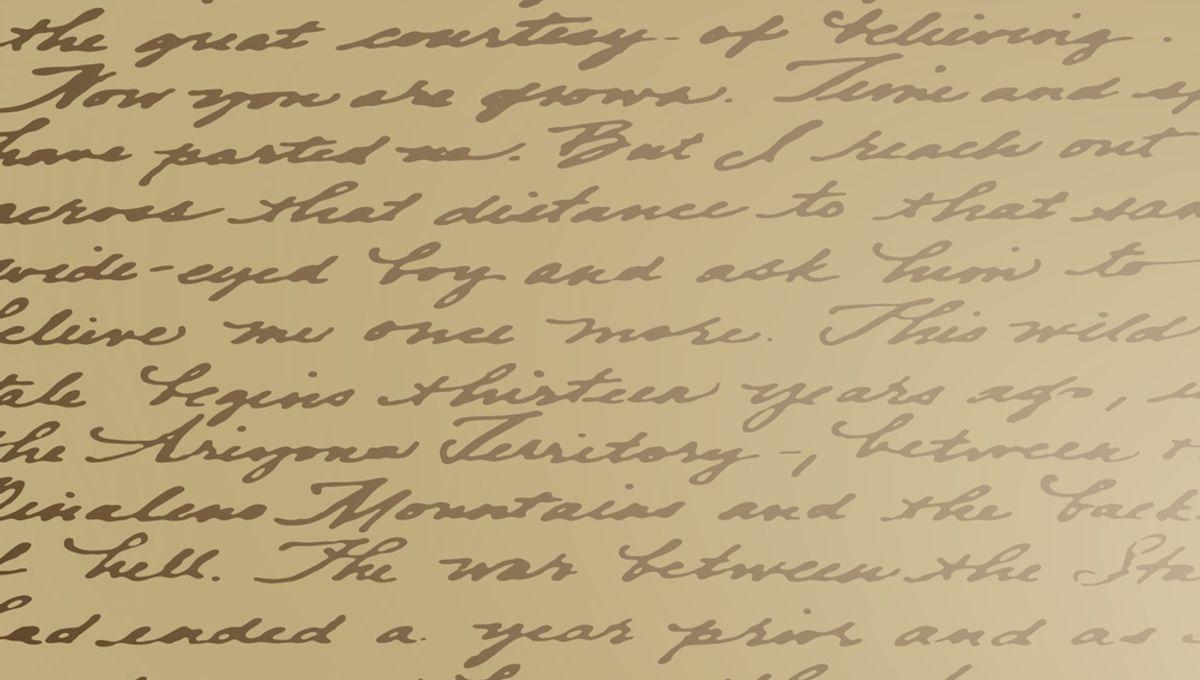 the great courtesy of believing.
Now you are grown. Time and sp
have parted me. But I reach out
across that distance to that sam
wide-eyed boy and ask him to
elieve me once more. This wild
tale begins thirteen years ago,
the Arizona Territory -, between t
Pinaleno Mountains and the back
hell. The war between the Sta
had ended a year prior and as